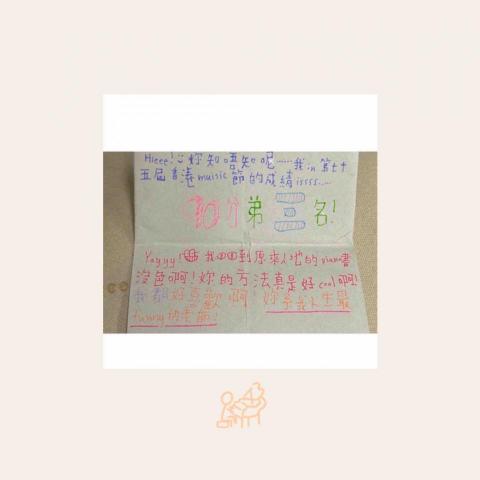 Hieee! 妳知唔知呢……我in第七十
五屆香港muisic節的成績issss....
90分第三名!
Yayyy! 我 到原來人地的piano書
沒色啊!妳的方法真是好cool啊!
我都好喜歡啊!妳系我人生最
funny的老師!